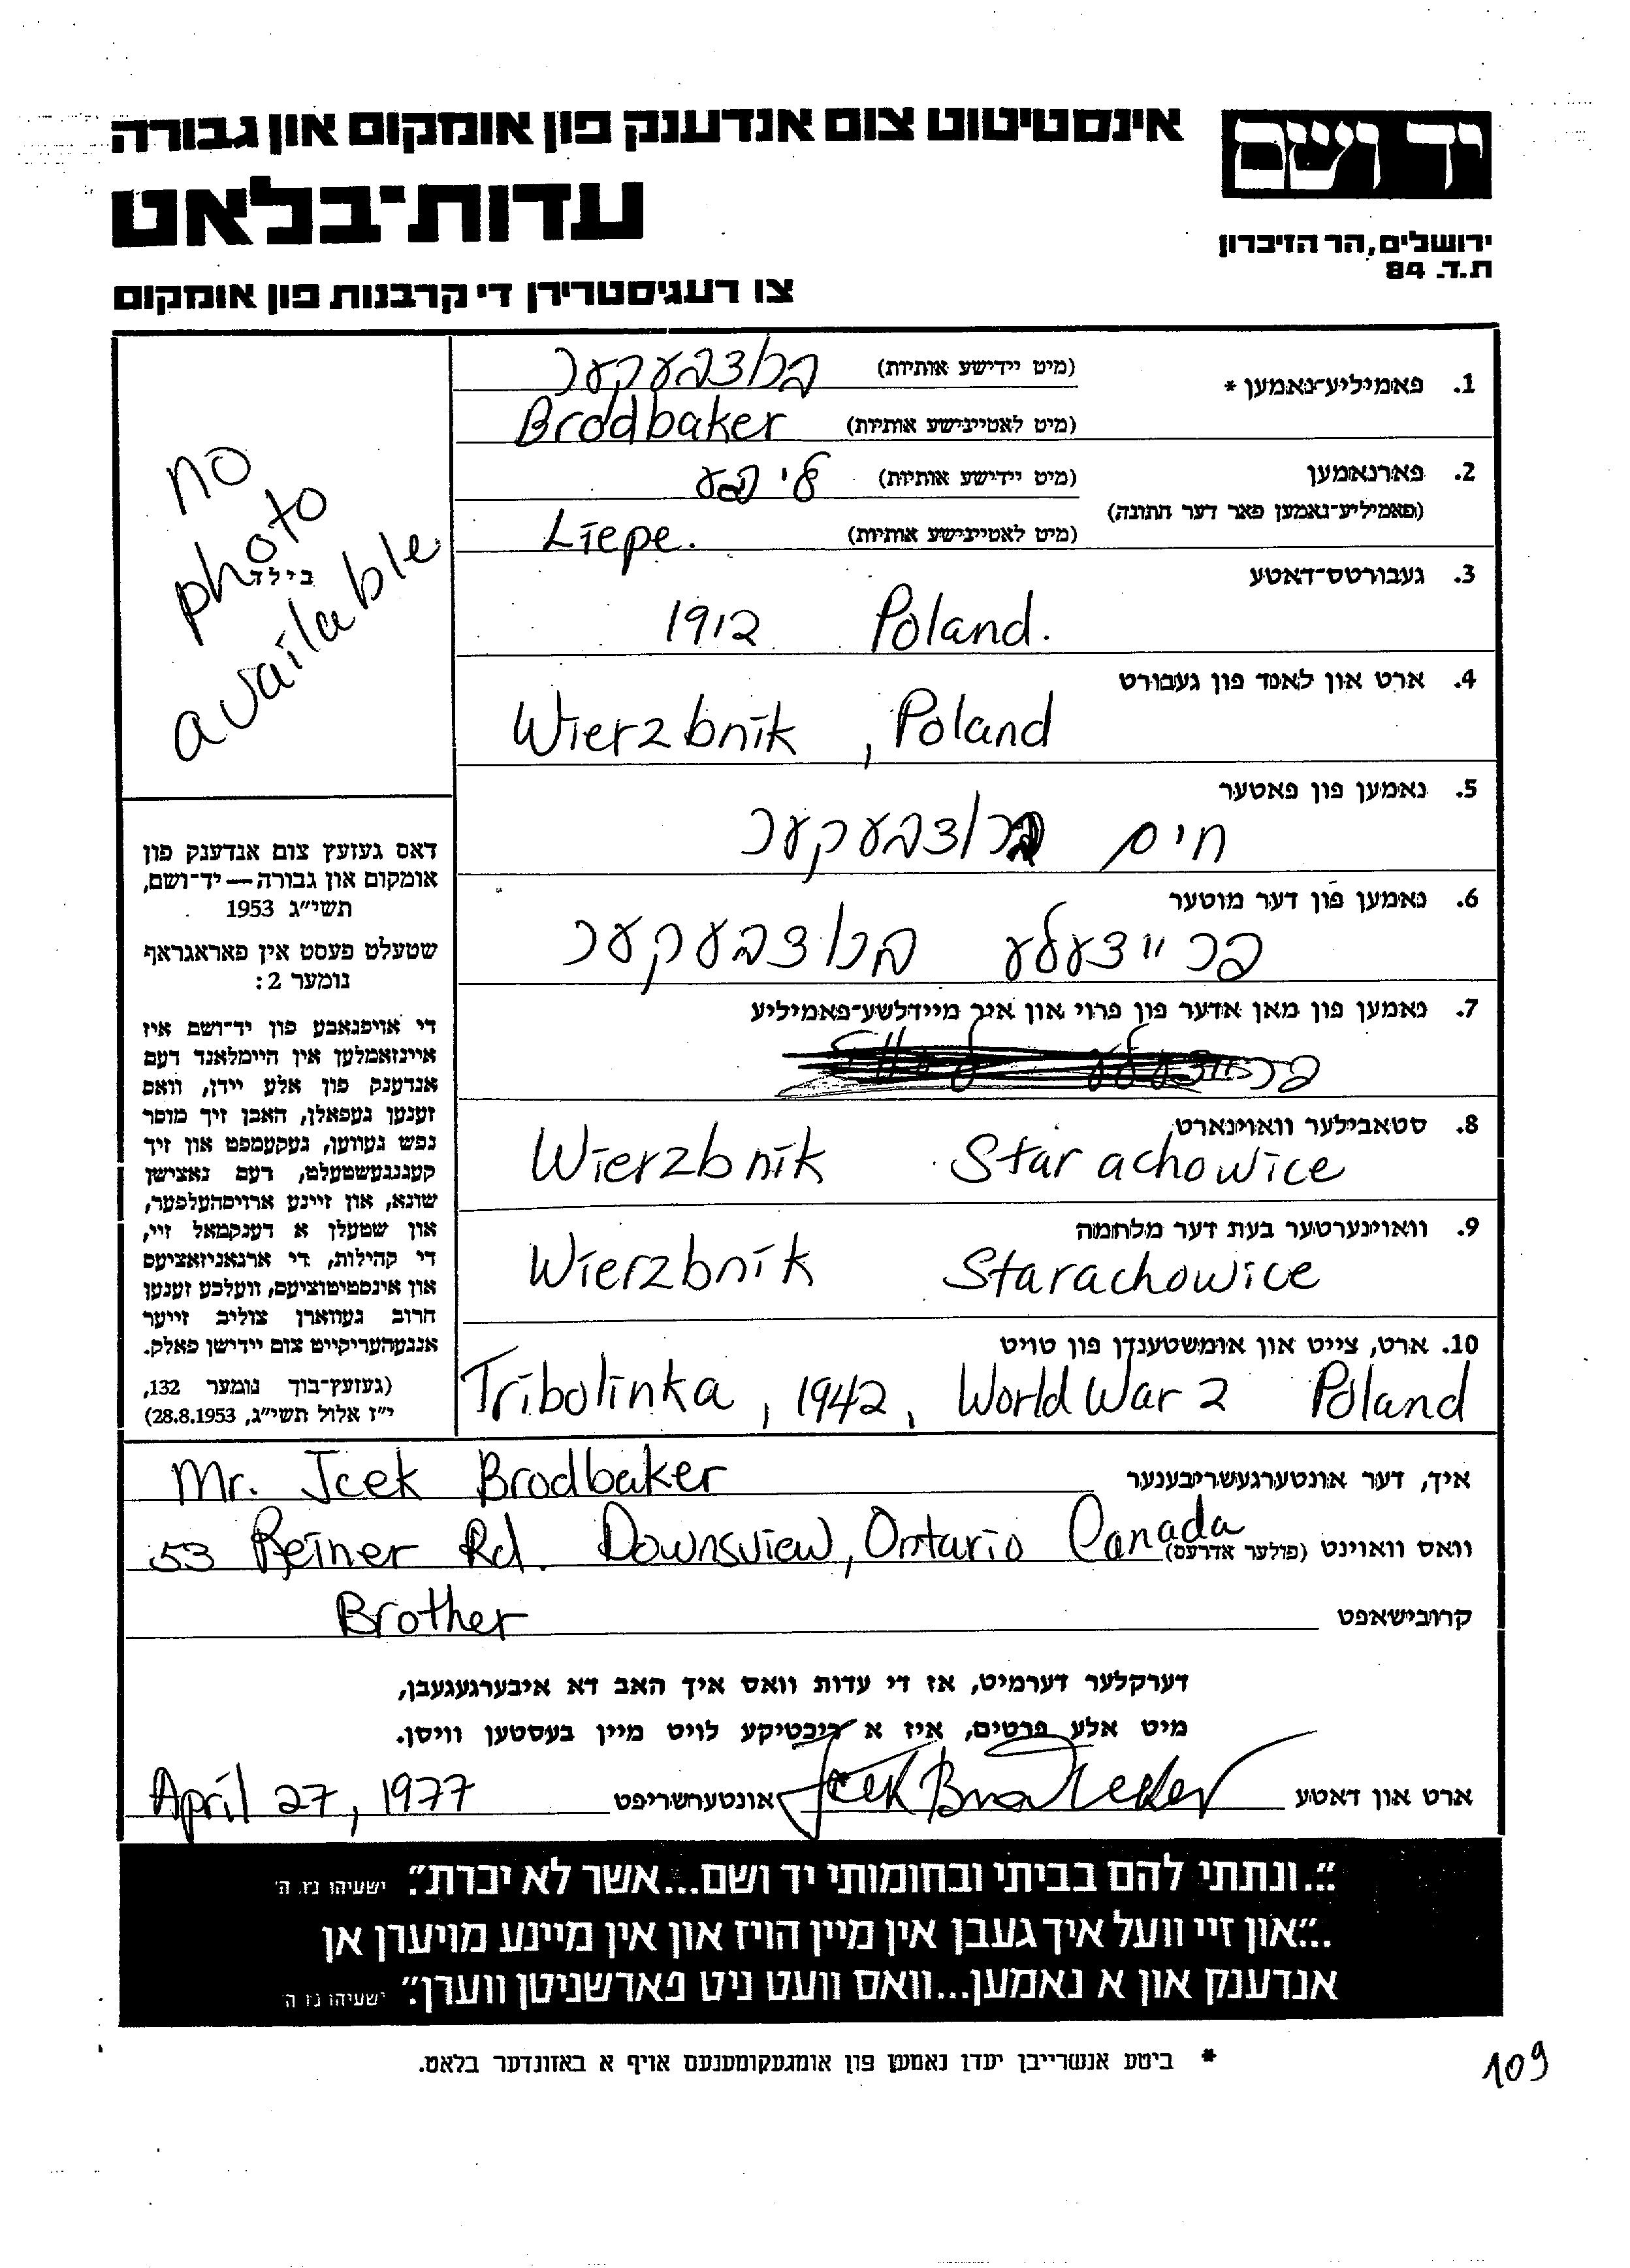 אינסטיטוט צום אנדענק פון אומקום און גבורה
יד ושם
עדות־בלאט
ירושלים, הר הזיכרון
ת.ד. 84
צו רעגיסטרירן די קרבנות פון אומקום
1. פאמיליע־נאמען * (מיט יידישע אותיות) בראדבעקער
(מיט לאטיינישע אותיות) Brodbaker
2. פארנאמען (מיט יידישע אותיות) ליפע
(פאמיליע־נאמען פאר דער חתונה)
(מיט לאטיינישע אותיות) Liepe.
3. געבורטס־דאטע
1912 Poland.
4. ארט און לאנד פון געבורט
Wierzbnik, Poland
5. נאמען פון פאטער
חיים
6. נאמען פון דער מוטער
7. נאמען פון מאן אדער פון פרוי און איר מיידלשע־פאמיליע
8. סטאבילער וואוינארט
Wierzbnik Starachowice
9. וואוינערטער בעת דער מלחמה
Wierzbnik Starachowice
10. ארט, צייט און אומשטענדן פון טויט
Tribolinka, 1942, World War 2 Poland
no
photo
בילד
available
דאס געזעץ צום אנדענק פון
אומקום און גבורה — יד־ושם,
תשי״ג 1953
שטעלט פעסט אין פאראגראף
נומער 2:
די אויפגאבע פון יד־ושם איז
איינזאמלען אין היימלאנד דעם
אנדענק פון אלע יידן, וואס
זענען געפאלן, האבן זיך מוסר
נפש געווען, געקעמפט און זיך
קעגנגעשטעלט, דעם נאצישן
שונא, און זיינע ארויסהעלפער,
און שטעלן א דענקמאל זיי,
די קהילות, די ארגאניזאציעס
און אינסטיטוציעס, וועלכע זענען
חרוב געווארן צוליב זייער
אנגעהעריקייט צום יידישן פאלק.
(געזעץ־בוך נומער 132,
י״ז אלול תשי״ג, 28.8.1953)
איך, דער אונטערגעשריבענער Mr. Icek Brodbaker
וואס וואוינט (פולער אדרעס) 53 Reiner Rd. Downsview, Ontario Canada
קרובישאפט Brother
דערקלער דערמיט, אז די עדות וואס איך האב דא איבערגעגעבן,
מיט אלע פרטים, איז א ריכטיקע לויט מיין בעסטען וויסן.
ארט און דאטע Icek Brodbeker אונטערשריפט April 27, 1977
״...ונתתי להם בביתי ובחומותי יד ושם...אשר לא יכרת״. ישעיהו נו, ה׳
...״און זיי וועל איך געבן אין מיין הויז און אין מיינע מויערן אן
אנדענק און א נאמען...וואס וועט ניט פארשניטן ווערן״. ישעיהו נו ה׳
* ביטע אנשרייבן יעדן נאמען פון אומגעקומענעם אויף א באזונדער בלאט.
109